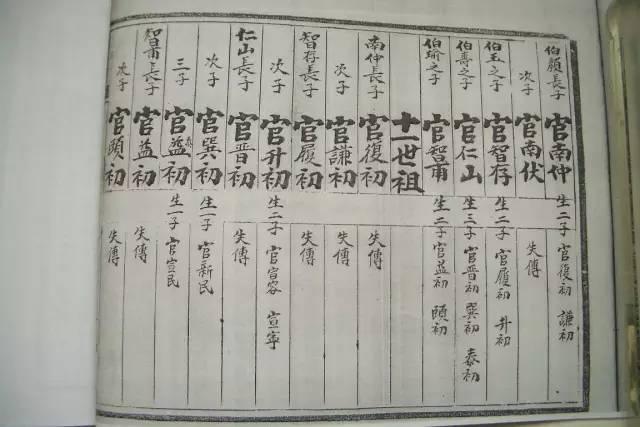 伯顏長子 官南仲 生二子 官復初 謙初
次子 官南伏 失傳
伯玉之子 官智存 生二子 官履初 升初
伯壽之子 官仁山 生三子 官晋初 巽初 泰初
伯瑜之子 官智甫 生二子 官益初 頤初
十一世祖
南仲長子 官復初 失傳
次子 官謙初 失傳
智存長子 官履初 失傳
次子 官升初 生二子 官宣容 宣寧
仁山長子 官晋初 失傳
次子 官巽初 生一子 官新民
三子 官益初 生一子 官宣民
智甫長子 官益初 失傳
次子 官頤初 失傳